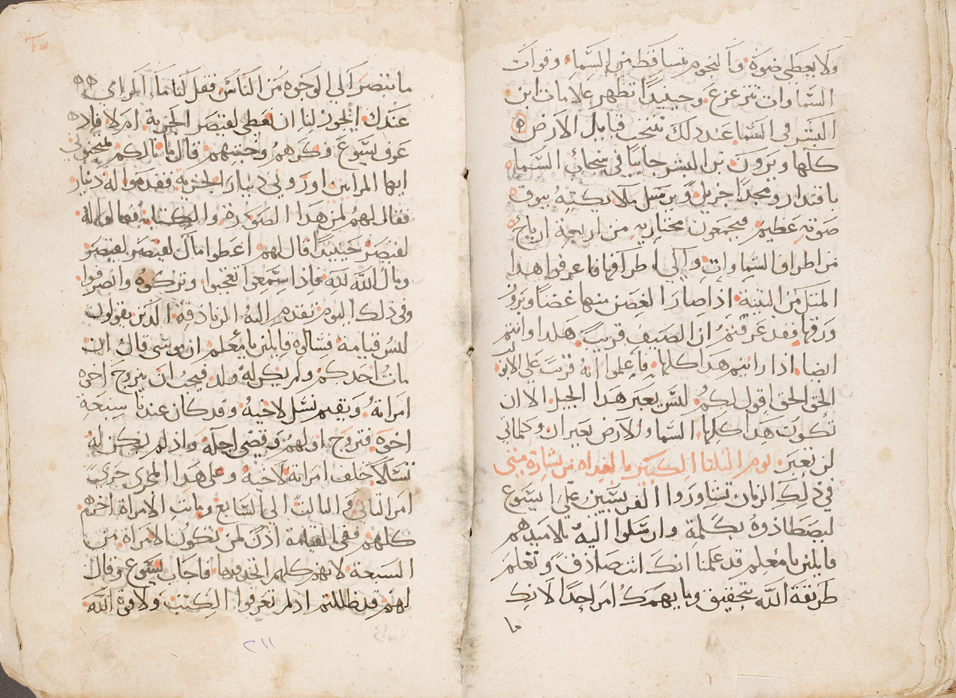 ولا يعطي ضوه والنجوم تساقط من السما وقوات
السماوات تتزعزع وحينيدا تظهر علامات ابن
البشر في السما عند ذلك تنتحب قبايل الارض
كلها ويرون بن البشر جاييا في سحاب السما
باقتدار ومجدا جزيل ويرسل ملايكته ببوق
صوته عظيم فيجمعون مختاريه من اربعة ارياح
من اطراف السماوات والي اطرافها فاعرفوا هدا
المتل من التينه اذا صار الغصن منها غضا وبرز
ورقها فقد عرفتم ان الصيف قريب هكدا وانتم
ايضا اذا رايتم هدا كلها فاعلموا انه قريب علي الابواب
الحق الحق اقول لكم ليس يعبر هدا الجيل الا ان
تكون هدا كلها السما والارض تعبران وكلماتي
لن تعبر يوم التلتا الكبير بالغداه من بشارة متي
في دلك الزمان تشاوروا الفريسيين علي ايسوع
ليصطادوه بكلمة وارسلوا اليه تلاميدهم
قايلين يا معلم قد علمنا انك انت صادق وتعلم
طريقة الله بتحقيق وما يهمك امر احدا لانك
ما
ما تنضر الي الوجوه من الناس فقل لنا ما المراي
عندك ايجوز لنا ان نعطي لقيصر الجزية ام لا فلما
عرف ايسوع مكرهم وخبثهم قال ما بالكم تمتحنوني
ايها المرايين اوروني دينار الجزيه فقدموا له دينار
فقال لهم لمن هدا الصورة والكتابه فقالوا له
لقيصر حينيدا قال لهم اعطوا مال لقيصر لقيصر
ومال الله لله فاذا سمعوا تعجبوا وتركوه وانصرفوا
وفي دلك اليوم تقدم اليه الزنادقه الدين يقولون
ليس قيامة فسالوه قايلين يا معلم ان موسي قال ان
مات احدكم ولم يكن له ولد فيجب ان يتزوج اخوه
امراته ويقيم نسل لاخيه وقد كان عندنا سبعة
اخوه فتزوج اولهم وقضي اجله واد لم يكن له
نسلا خلف امراته لاخيه وعلي هدا المجري جري
امر التاني والتالت الي السابع وماتت الامراة اخرهم
كلهم ففي القيامة ادن لمن تكون الامراه من
السبعة لانهم كلهم اتخدوها فاجاب ايسوع وقال
لهم قد ظللتم اذ لم تعرفوا الكتب ولا قوة الله
٢١١